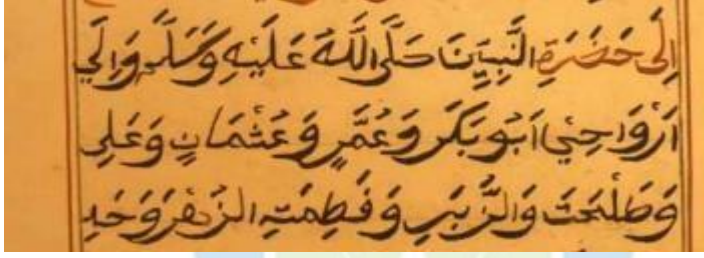 اِلَى حَضَرَةِ النَّبِيِّنَ صَلَّى اللَّهُ عَلَيْهِ وَسَلَّم وَاِلَي
اَرْوَاحِيْ اَبُوبَكَر وَعُمَّرٍ وَعُثْمَانٍ وَعَلِى
وَطَلْحَتَ وَالزُّبَيِ وَفَطِمَتِهِ الزُهْرَ وَخَدِ